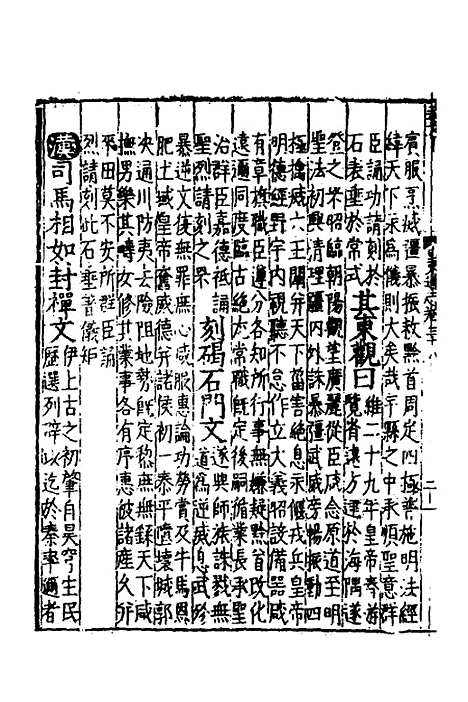 賓服烹滅彊暴振救黔首周定四極普施明法經
緯天下永為儀則大矣哉宇縣之中承順聖意群
臣誦功請刻於
石表垂於常式
其東觀曰
維二十九年皇帝春游
覽省遠方逮於海隅遂
登之罘昭臨朝陽觀望廣麗從臣咸念原道至明
聖法初興清理疆內外誅暴彊武威旁暢振動四
極擒滅六王闡并天下甾害絕息永偃戎兵皇帝
明德經理宇內視聽不怠作立大義昭設備器咸
有章旗職臣遵分各知所行事無嫌疑黔首改化
遠邇同度臨古絕尤常職既定後嗣循業長承聖
治群臣嘉德祗誦
聖烈請刻之罘
刻碣石門文
遂興師旅誅戮無
道為逆滅息武殄
暴逆文復無罪庶心咸服惠論功勞賞及牛馬恩
肥土域皇帝奮威德并諸侯初一泰平墮壞城郭
決通川防夷去險阻地勢既定黎庶無繇天下咸
撫男樂其疇女修其業事各有序惠被諸產久並
來田莫不安所群臣誦
烈請刻此石垂著儀矩
漢
司馬相如封禪文
伊上古之初肇自昊穹生民
歷選列辟以迄於秦率邇者